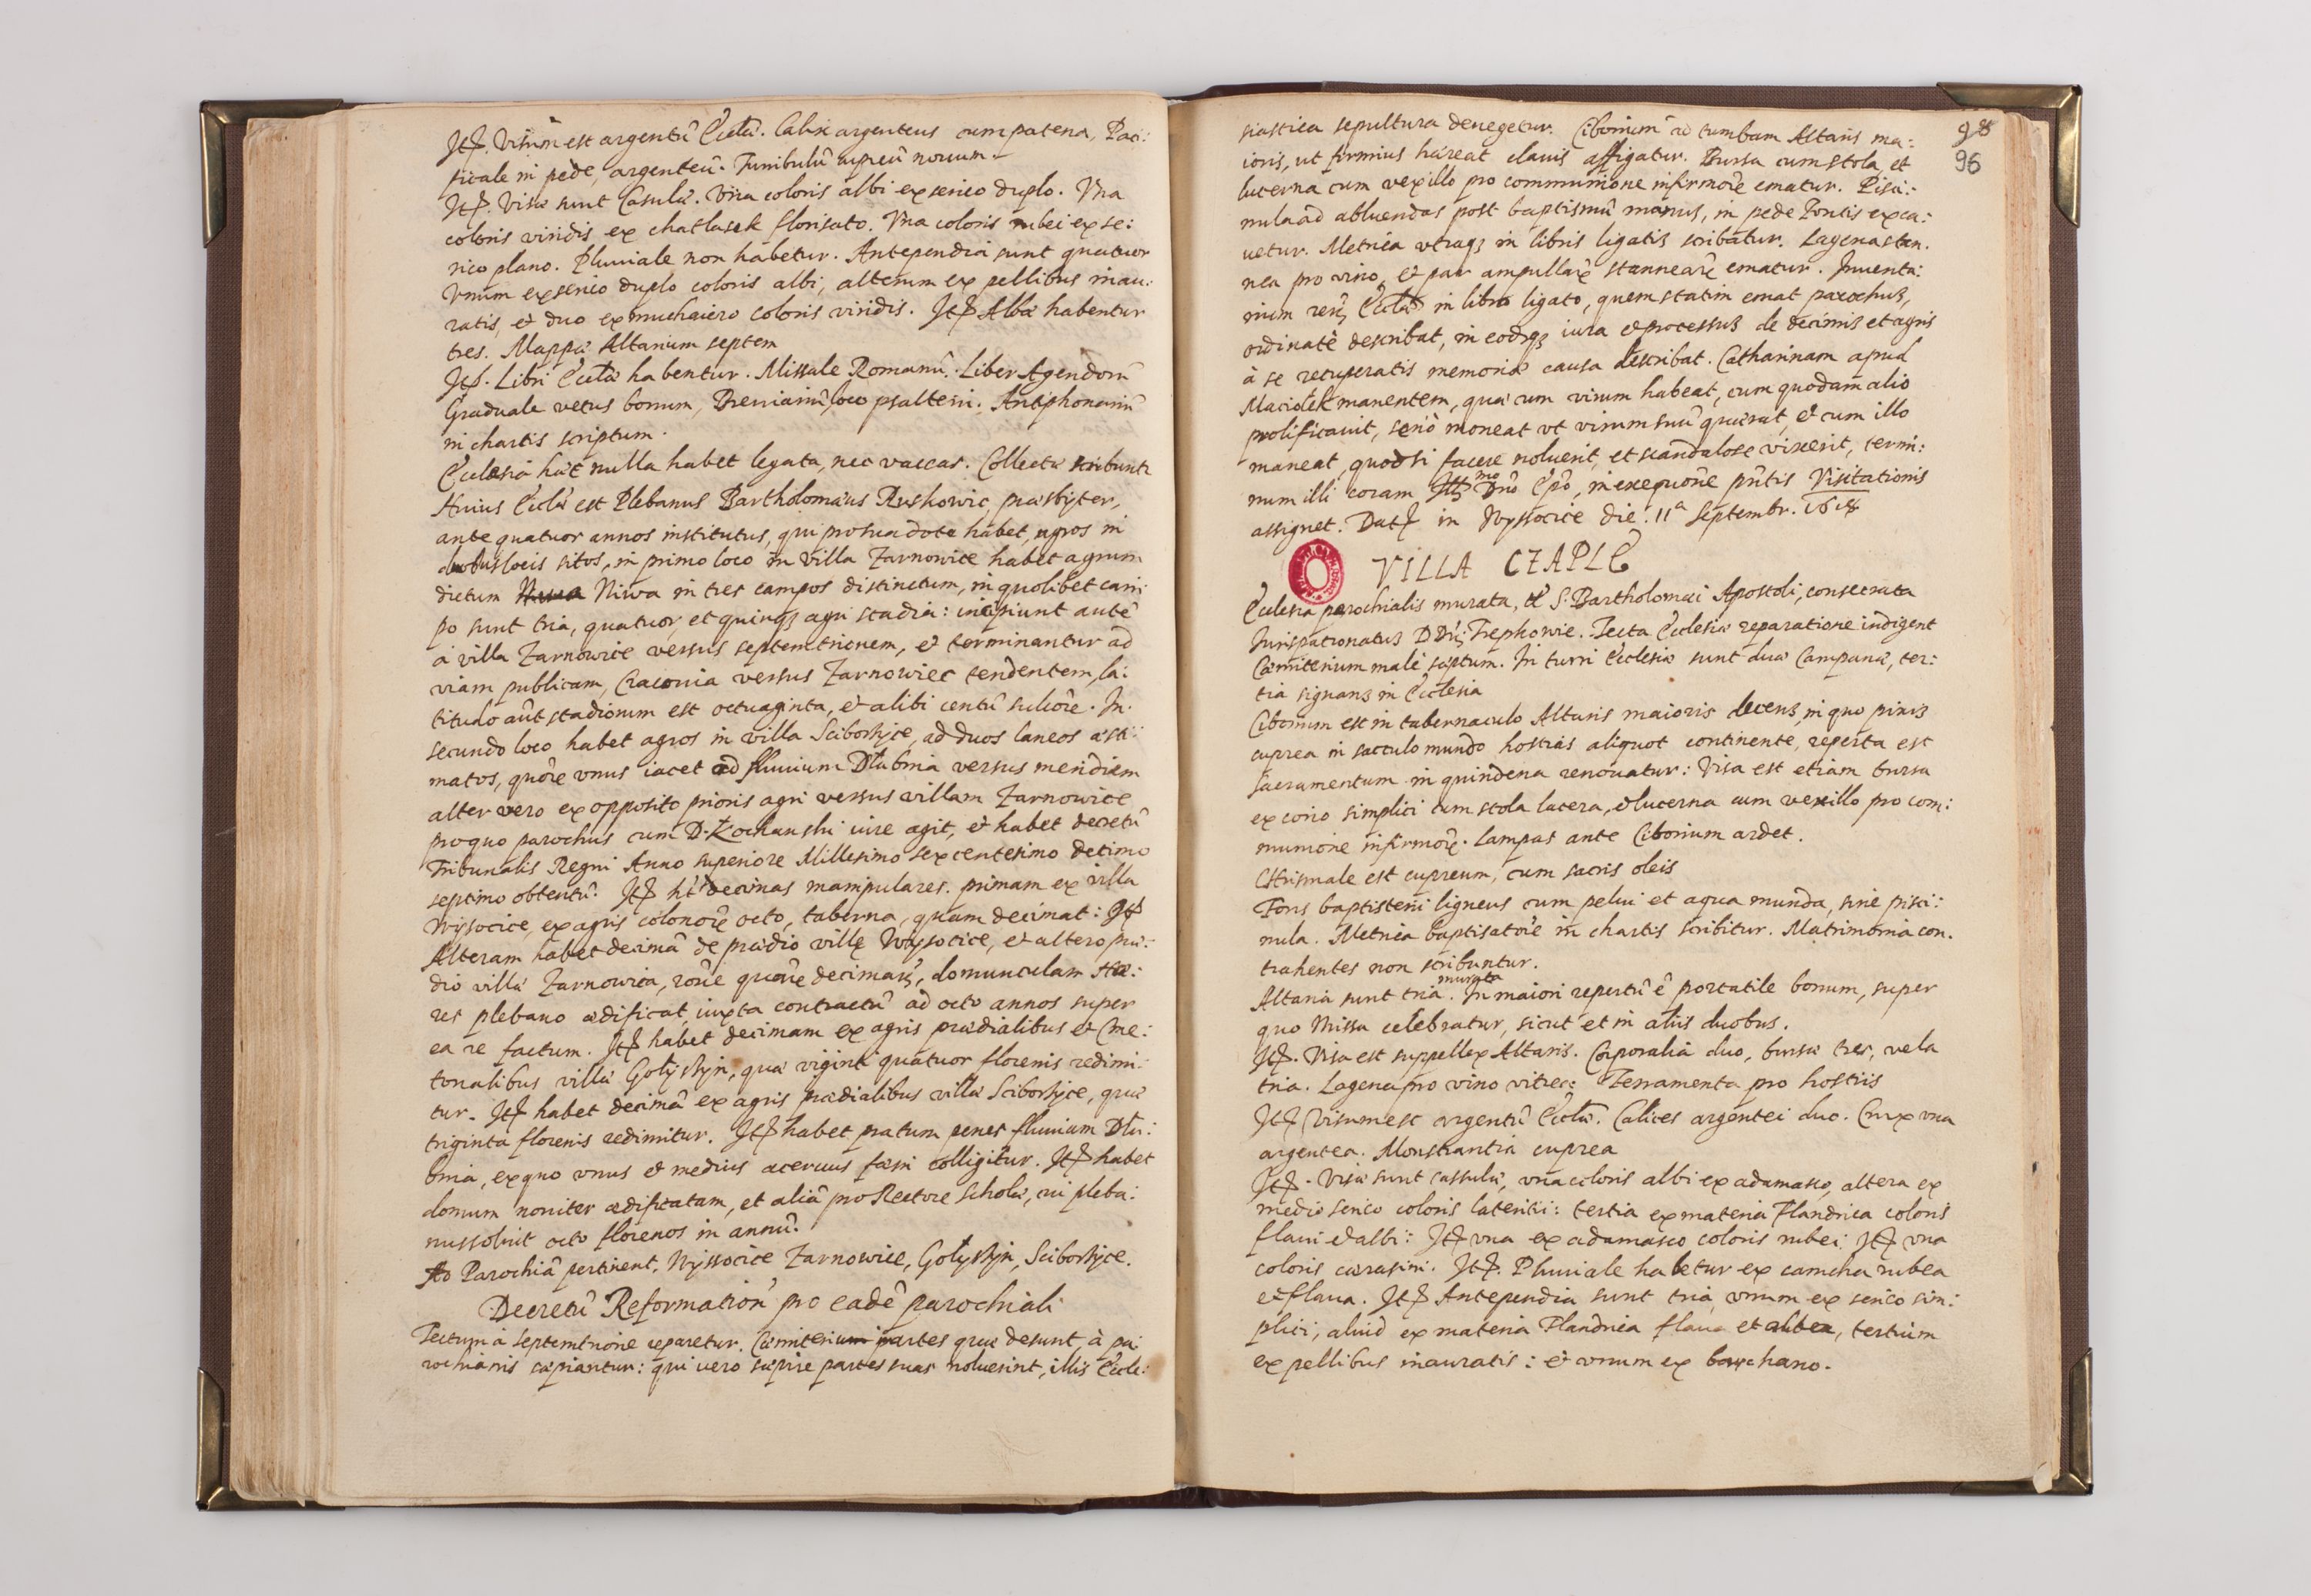 Itē. Visum est argentū Eccłæ. Calix argenteus cum patena, Paci:
ficale in pede, argenteū. Turribulū cupreū novum.
Itē. Visæ sunt Casulæ. Vna coloris albi ex serico duplo. Vna
coloris viridis ex chatłasek florisato. Vna coloris rubei ex se:
rico plano. Pluviale non habetur. Antependia sunt quatuor
Vnum ex serico duplo coloris albi, alterum ex pellibus inau:
ratis, et duo ex muchaiero coloris viridis. Itē Albæ habentur
tres. Mappæ Altarium septem
Itē. Libri Eccłæ habentur. Missale Romanū. Liber Agendorū
Graduale vetus bonum, Breviariū loco psalterii. Antiphonariū
in chartis scriptum.
Ecclesia hæc nulla habet legata, nec vaccas. Collecta scribuntr
Huius Eccłæ est Plebanus Bartholomæus Ruskowic, præsbyter,
ante quatuor annos institutus, qui pro sua dote habet, agros in
duobus locis sitos, in primo loco in villa Zarnowice habet agrum
dictum Niwa in tres campos distinctum, in quolibet cam
po sunt tria, quatuor, et quinqȝ agri stadia: incipiunt autē
à villa Zarnowice versus septemtrionem, et terminantur ad
viam publicam, Cracovia versus Zarnowiec tendentem, la:
titudo aūt stadiorum est octuaginta, et alibi centū sulcorē. In
secundo loco habet agros in villa Sciborzyce, ad duos laneos æsti:
matos, quorē vnus iacet ad fluvium Dłubnia versus meridiem
alter vero ex opposito prioris agri versus villam Zarnowice
pro quo parochus cum D. Kochanski iure agit, et habet decretū
Tribunalis Regni Anno superiore Millesimo sexcentesimo decimo
septimo obtentū. Itē ht decimas manipulares. primam ex villa
Wysocice, ex agris colonorē octo, taberna, quam decimat: Itē
Alteram habet decimā de prædio villę Wysocice, et altero præ:
dio villæ Zarnowica, rōne quarē decimarȝ, domunculam Hæ:
res plebano ædificat, iuxta contractū ad octo annos super
ea re factum. Itē habet decimam ex agris prædialibus et Cme:
tonalibus villæ Gołyszyn, quæ viginti quatuor florenis redimi:
tur. Itē habet decimā ex agris prædialibus villæ Sciborzyce, quæ
triginta florenis redimitur. Itē habet pratum penes fluvium Dłu:
bnia, ex quo vnus et medius acervus fœni colligitur. Itē habet
domum noviter ædificatam, et aliā pro Rectore Scholæ, cui pleba:
nus solvit octo florenos in annū.
Ad Parochiā pertinent, Wyssocice Zarnowice, Gołyszyn, Sciborzyce.
Decretū Reformation pro eadē parochiali
Tectum à septemtrione reparetur. Cœmiterium partes quæ desunt, à pa
rochianis sæpiantur: qui vero sæpire partes suas noluerint, illis Eccle:
98
96
siastica sepultura denegetur. Ciborium ad tumbam Altaris ma:
ioris, ut firmius hæreat clavis affigatur. Bursa cum stola, et
lucerna cum vexillo pro communione infirmorē ematur. Pisci:
nula ad abluendas post baptismū manus, in pede Fontis exca:
vetur. Metrica vtraqȝ in libris ligatis scribatur. Lagena stan.
nea pro vino, et par ampullarē stannearē ematur. Inventa:
rium rerȝ Eccłæ in libro ligato, quem statim emat parochus,
ordinatè describat, in eodqȝ iura et processus de decimis et agris
à se recuperatis memoriæ causa describat. Catharinam apud
Maciołek manentem, quæ cum virum habeat, cum quodam alio
prolificavit, seriò moneat vt virum suū quærat, et cum illo
maneat, quod si facere noluerit, et scandalose vixerit, termi:
num illi coram Illmo Dno Epo, in exequōne pntis Visitationis
assignet. Datē in Wyssocice die 11a Septembr. 1618
VILLA CZAPLE
Ecclesia parochialis murata, tł S. Bartholomæi Apostoli, consecrata
Iurispatronatus DDnȝ Trepkowie. Tecta Ecclesiæ reparatione indigent
Cœmiterium malè sæptum. In turri Ecclesiæ sunt duæ Campanæ, ter:
tia signans in Ecclesia
Ciborium est in tabernaculo Altaris maioris decens, in quo pixis
cuprea in sacculo mundo hostias aliquot continente, reperta est
Sacramentum in quindena renovatur: Visa est etiam bursa
ex corio simplici cum stola lacera, et lucerna cum vexillo pro com:
munione infirmorē. Lampas ante Ciborium ardet.
Chrismale est cupreum, cum sacris oleis
Fons baptisterii ligneus cum pelui et aqua munda, sine pisci:
nula. Metrica baptisatorē in chartis scribitur. Matrimonia con.
trahentes non scribuntur.
Altaria sunt tria murata. In maiori repertū ē portatile bonum, super
quo Missa celebratur, sicut et in aliis duobus.
Itē. Visa est suppellex Altaris. Corporalia duo, bursæ tres, vela
tria. Lagena pro vino vitrea: Ferramenta pro hostiis
Itē Visum est argentū Eccłæ. Calices argentei duo. Crux vna
argentea. Monstrantia cuprea
Itē. Visæ sunt cassulæ, vna coloris albi ex adamasco, altera ex
medio serico coloris lateritii: tertia ex materia Flandrica coloris
flavi et albi: Itē vna ex adamasco coloris rubei: Itē vna
coloris cærasini. Itē. Pluviale habetur ex camcha rubea
et flava. Itē Antependia sunt tria, vnum ex serico sim:
plici, aliud ex materia Flandrica flava et albea, tertium
ex pellibus inauratis: et vnum ex barchano.